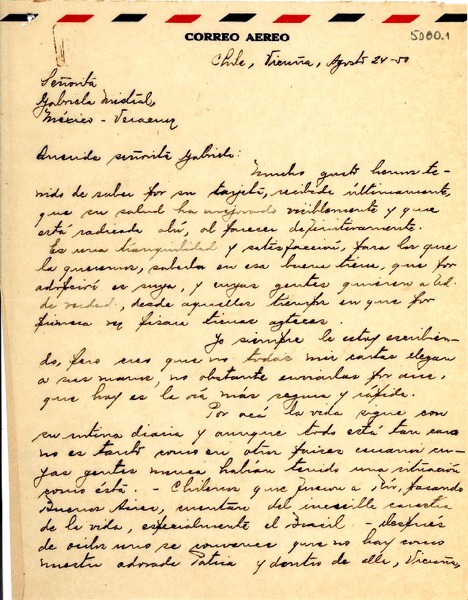 CORREO AEREO
5080.1
Chile, Vicuña, Agosto 24-50
Señorita
Gabriela Mistral,
México - Veracruz
Querida señorita Gabriela:
Mucho gusto hemos te-
nido de saber por su tarjeta, recibida últimamente,
que su salud ha mejorado visiblemente y que
está radicada ahí, al parecer definitivamente.
Es una tranquilidad y satisfacción, para los que
la queremos, saberla en esa buena tierra, que por
adopción es suya, y cuyas gentes quieren a Ud.
de verdad, desde aquellos tiempos en que por
primera vez pisara tierras aztecas.
Yo siempre le estoy escribien-
do, pero creo que no todas mis cartas llegan
a sus manos, no obstante enviarlas por aire,
que hoy es la vía más segura y rápida.
Por acá la vida sigue con
su rutina diaria y aunque todo está tan caro
no es tanto como en otros países cu-
yas gentes nunca habían tenido una situación
como ésta. - Chilenos que fueron a Río, pasando
Buenos Aires, cuentan del increíble carestía
de la vida, especialmente el Brasil - después
de oirlos uno se convence que no hay como
nuestra adorada Patria y dentro de ella, Vicuña,